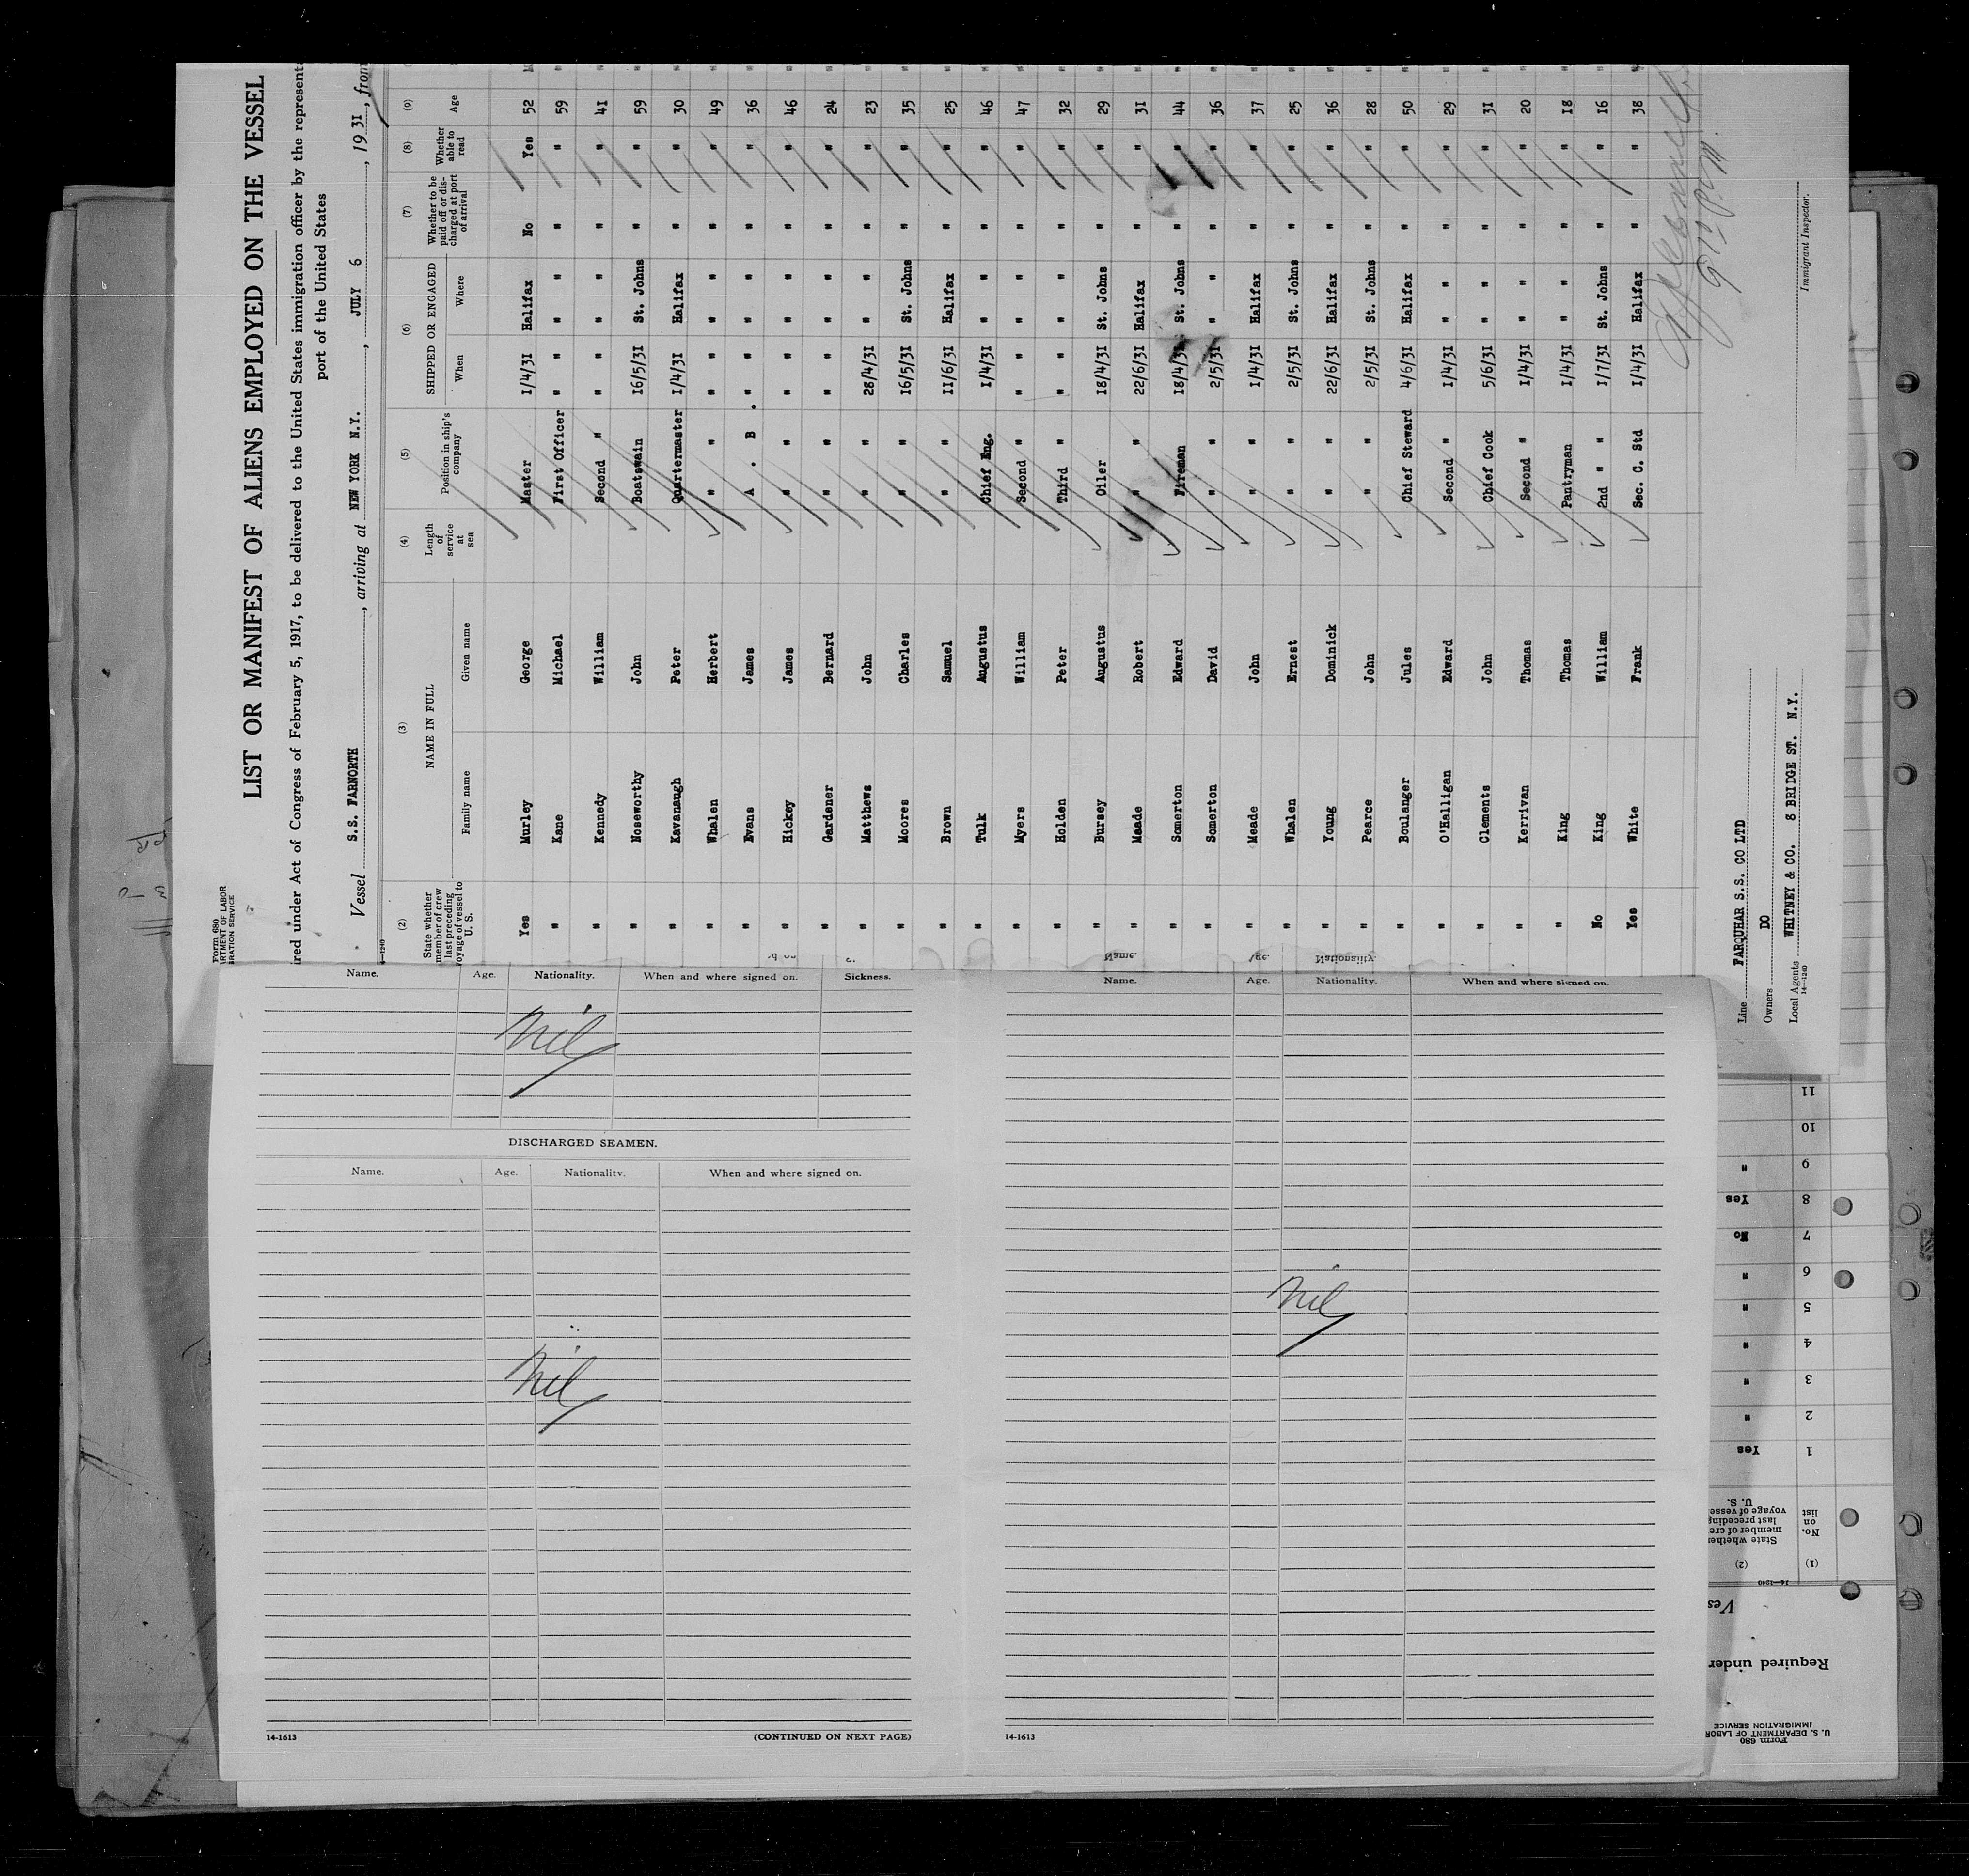 Form 680
LIST OR MANIFEST OF ALIENS EMPLOYED ON THE VESSEL
red under Act of Congress of February 5, 1917, to be delivered to the United States immigration officer by the represent
port of the United States
Vessel S.S. FARNORTH, arriving at NEW YORK N.Y., JULY 6, 19 31, from
14-1240
(2) (3) (4) (5) (6) (7) (8) (9)
State whether member of crew last preceding voyage of vessel to U. S. NAME IN FULL Family name Given name Length of service at sea Position in ship's company SHIPPED OR ENGAGED When Where Whether to be paid off or discharged at port of arrival Whether able to read Age
Yes Murley George Master 1/4/31 Halifax No Yes 52
" Kane Michael First Officer " " " " 59
" Kennedy William Second " " " " " 41
" Noseworthy John Boatswain 16/5/31 St. Johns " " 59
" Kavanaugh Peter Quartermaster 1/4/31 Halifax " " 30
" Whalen Herbert " " " " " 49
" Evans James A . B . " " " " 36
" Hickey James " " " " " 46
" Gardener Bernard " " " " " 24
" Matthews John " 28/4/31 " " " 23
" Moores Charles " 16/5/31 St. Johns " " 35
" Brown Samuel " 11/6/31 Halifax " " 25
" Tulk Augustus Chief Eng. 1/4/31 " " " 46
" Myers William Second " " " " " 47
" Holden Peter Third " " " " " 32
" Bursey Augustus Oiler 18/4/31 St. Johns " " 29
" Meade Robert " 22/6/31 Halifax " " 31
" Somerton Edward Fireman 18/4/31 St. Johns " " 44
" Somerton David " 2/5/31 " " " 36
" Meade John " 1/4/31 Halifax " " 37
" Whalen Ernest " 2/5/31 St. Johns " " 25
" Young Dominick " 22/6/31 Halifax " " 36
" Pearce John " 2/5/31 St. Johns " " 28
" Boulanger Jules Chief Steward 4/6/31 Halifax " " 50
" O'Halligan Edward Second " 1/4/31 " " " 29
" Clements John Chief Cook 5/6/31 " " " 31
" Kerrivan Thomas Second " 1/4/31 " " " 20
" King Thomas Pantryman 1/4/31 " " " 18
No King William 2nd " " 1/7/31 St. Johns " " 16
Yes White Frank Sec. C. Std 1/4/31 Halifax " " 38
Line FARQUHAR S.S. CO LTD
Owners DO
Local Agents WHITNEY & CO. 8 BRIDGE ST. N.Y.
14-1240
Immigrant Inspector.
Name. Age. Nationality. When and where signed on. Sickness.
Nil
DISCHARGED SEAMEN.
Name. Age. Nationality. When and where signed on.
Nil
14-1613 (CONTINUED ON NEXT PAGE)
Name. Age. Nationality.
Name. Age. Nationality. When and where signed on.
Nil
14-1613
Form 680
U. S. DEPARTMENT OF LABOR
IMMIGRATION SERVICE
Required under
Ves
14-1240
(1) (2)
No. on list
State whether member of cre last preceding voyage of vesse U. S.
1 Yes
2 "
3 "
4 "
5 "
6 "
7 No
8 Yes
9 "
10
11